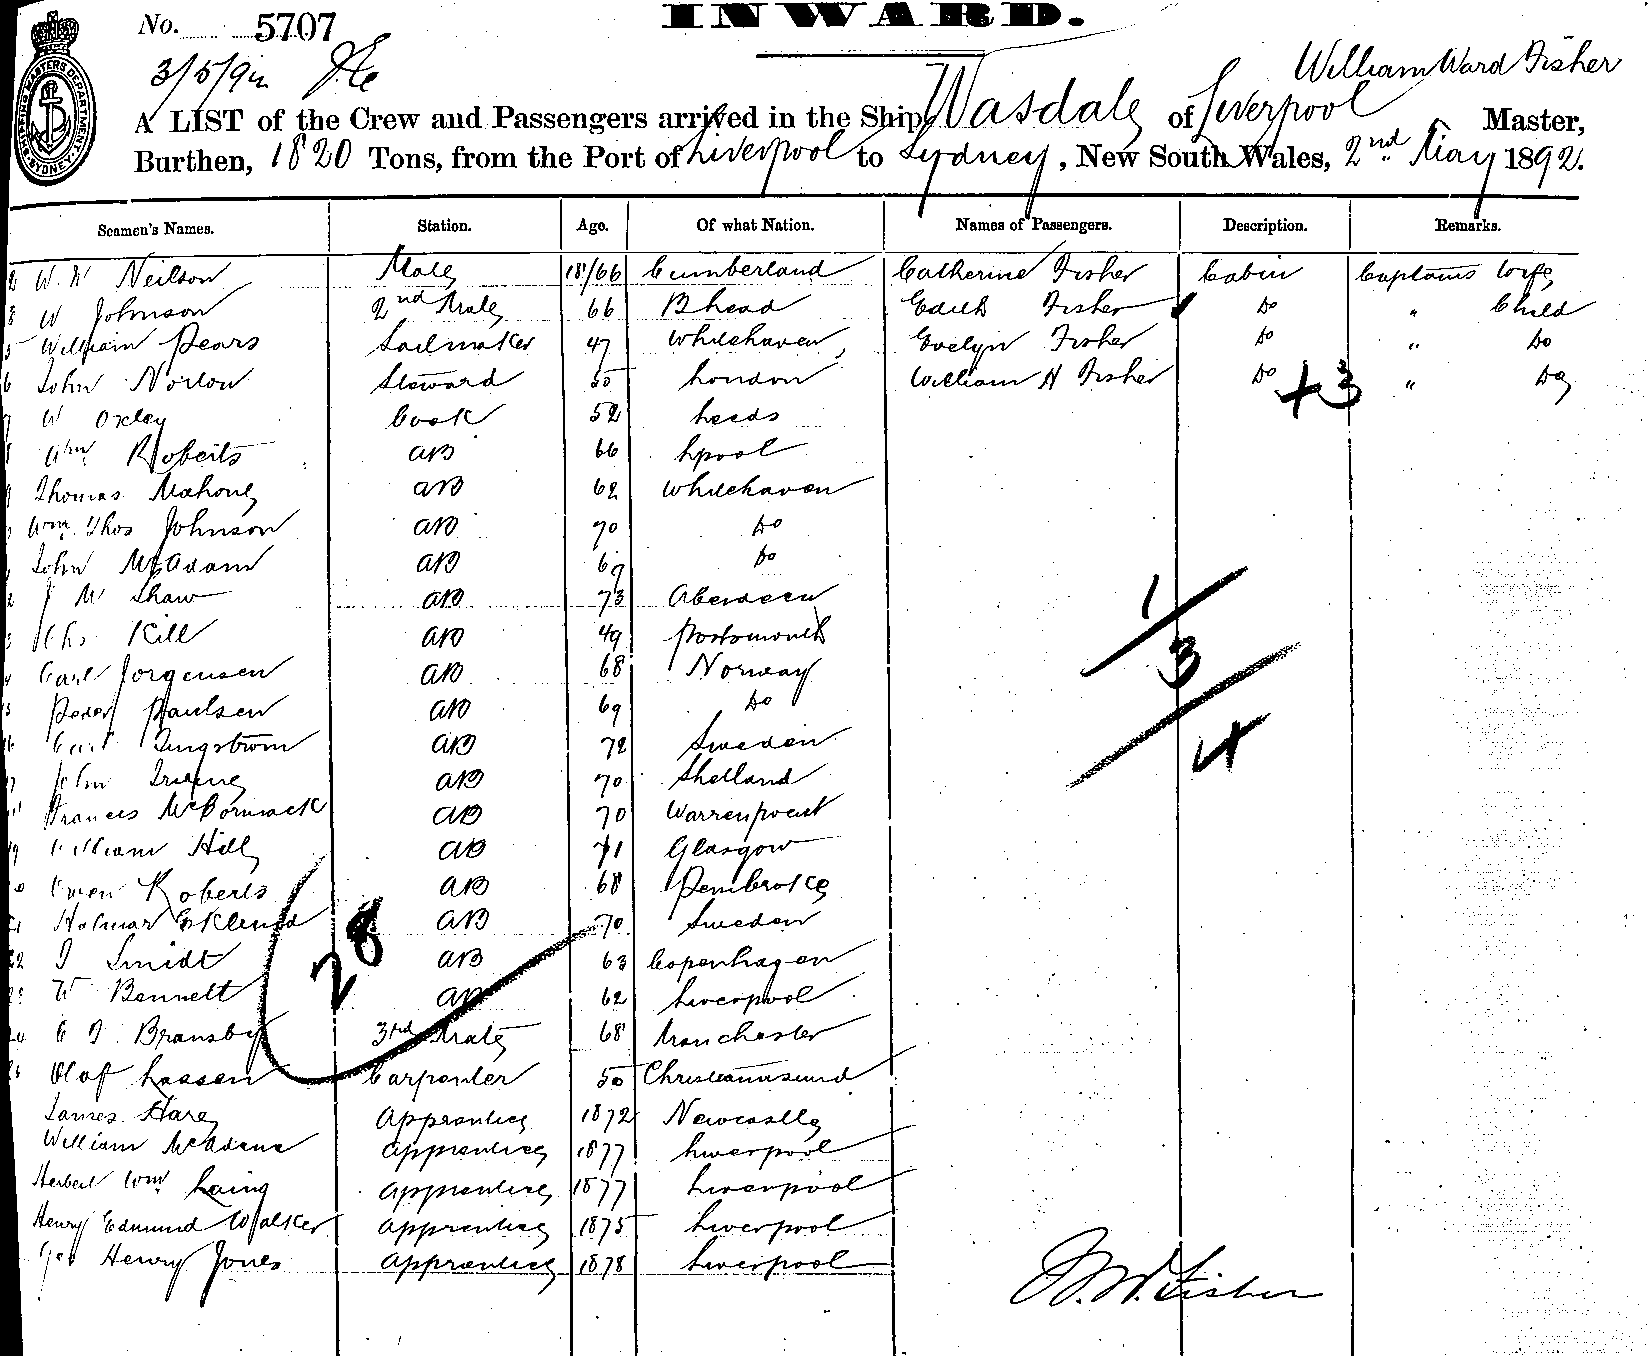 INWARD.
No. 5707
3/5/92
William Ward Fisher
A LIST of the Crew and Passengers arrived in the Ship Wasdale of Liverpool Master,
Burthen, 1820 Tons, from the Port of Liverpool to Sydney, New South Wales, 2nd May 1892.
Seamen's Names. Station. Age. Of what Nation. Names of Passengers. Description. Remarks.
W. N Neilson Mate 18/66 Cumberland Catherine Fisher Cabin Captains Wife
W Johnson 2nd Mate 66 B head Edith Fisher Do " Child
William Pears Sailmaker 47 Whitehaven Evelyn Fisher Do " Do
John Norton Steward 50 London William H Fisher Do " Do
+3
W Oxley Cook 52 Leeds
Wm Roberts AB 66 Lpool
Thomas Mahony AB 62 Whitehaven
Wm Thos Johnson AB 70 Do
John McAdam AB 69 Do
J W Shaw AB 73 Aberdeen
Chs Kill AB 49 Portsmouth
Carl Jorgensen AB 68 Norway
Peder Paulsen AB 69 Do
Carl Ljungstrom AB 72 Sweden
John Irving AB 70 Shetland
Frances McCormack AB 70 Warrenpoint
William Hill AB 71 Glasgow
Owen Roberts AB 68 Pembroke
Holmar Eklund AB 70 Sweden
J Smidt AB 63 Copenhagen
W Bennett AB 62 Liverpool
C J Bransby 3rd Mate 68 Manchester
Olof Lassen Carpenter 50 Christiansund
James Hare Apprentice 1872 Newcastle
William McAdam Apprentice 1877 Liverpool
Herbert Wm Laing Apprentice 1877 Liverpool
Henry Edmund Walker Apprentice 1875 Liverpool
Geo Henry Jones Apprentice 1878 Liverpool
28
1
3
4
W. W. Fisher